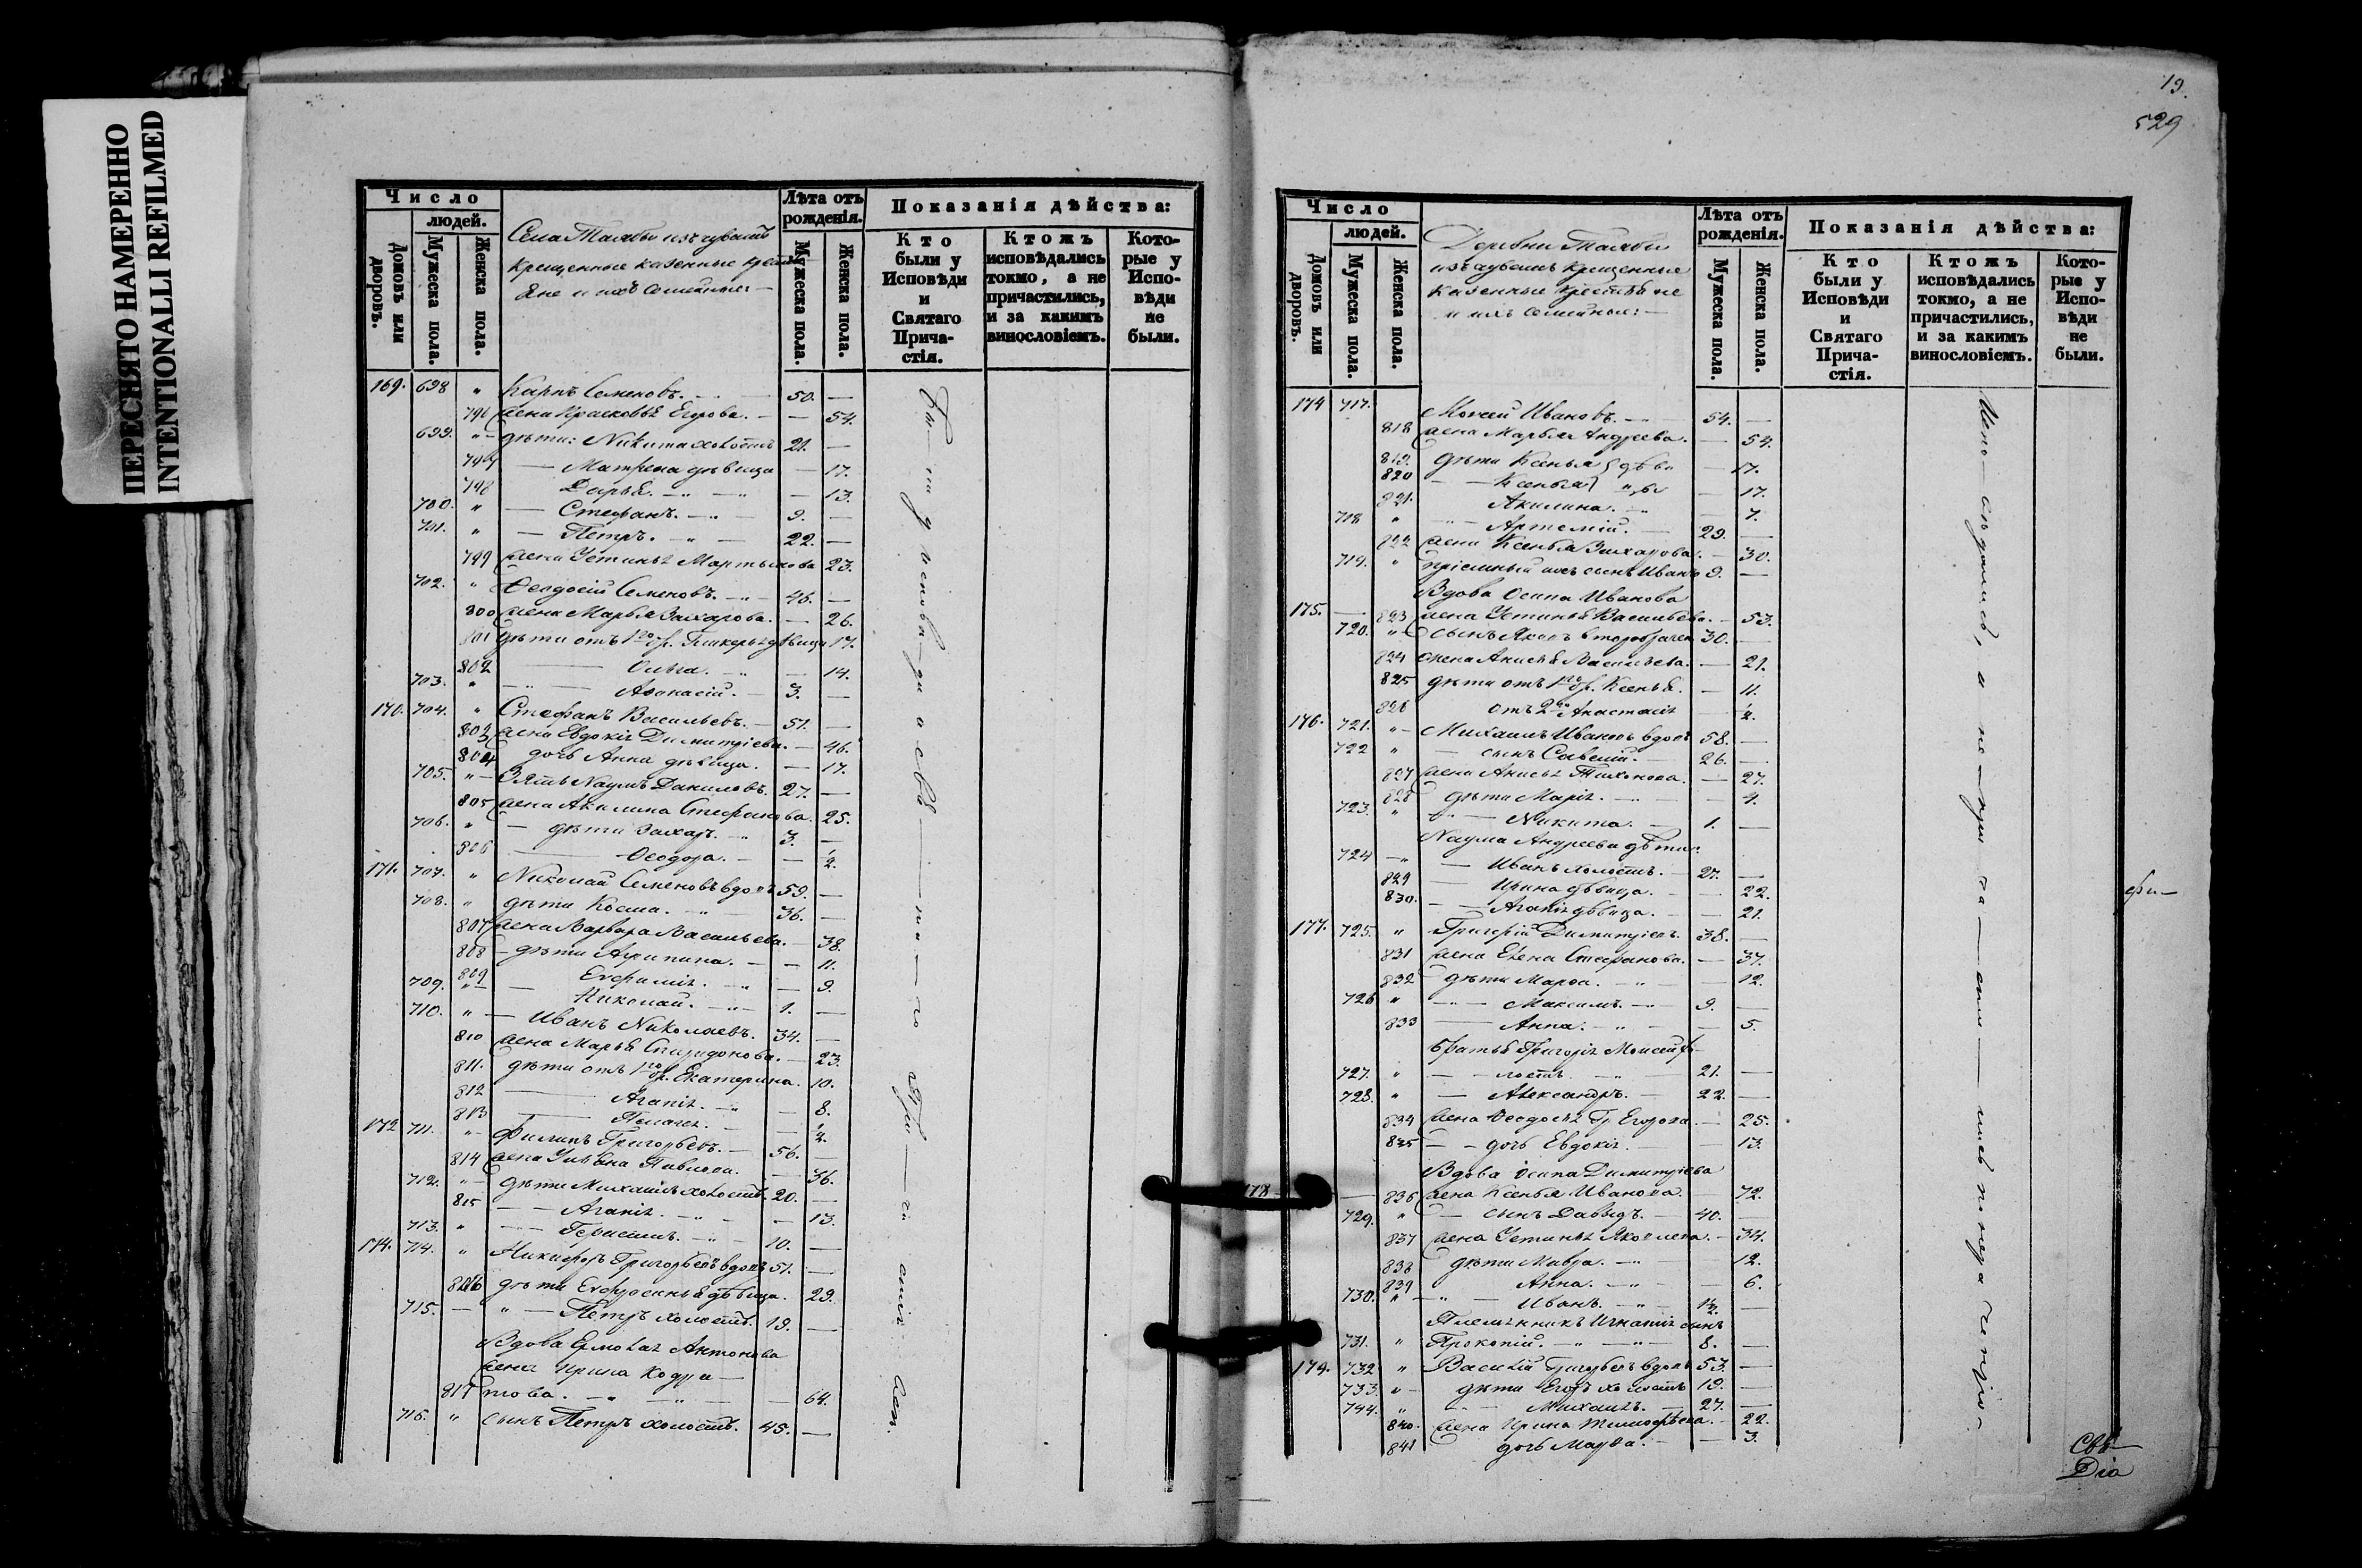 ПЕРЕСНЯТО НАМЕРЕННО
INTENTIONALLI REFILMED
Число
людей.
Домовъ или дворовъ.
Мужеска пола.
Женска пола.
Села изъ чувашъ
крещенные казенные
яне и ихъ семейные:
Лѣта отъ рожденія.
Мужеска пола.
Женска пола.
Показанія дѣйства:
Кто были у Исповѣди и Святаго Прича-стія.
Ктожъ исповѣдались токмо, а не причастились, и за какимъ винословіемъ.
Кото-рые у Испо-вѣди не были.
169. 698 " Карпъ Семеновъ. 50. —
796 жена Егорова. — 54.
699. " дѣти: Никита холостъ 21. —
797 — Матрена дѣвица — 17.
798 Дарья. — 13.
700. " — Стефанъ. 9. —
701. " — Петръ. 22. —
799 жена Устинья Мартынова 23.
702. " Ѳеодосій Семеновъ. 46. —
800 жена Марья Захарова. — 26.
801 дѣти отъ 1го бр. дѣвица 17.
802 Ольга. — 14.
703. " Аѳонасій. 3. —
170. 704. " Стефанъ Васильевъ. 57. —
803 жена Евдокія Димитріева. — 46.
804 дочь Анна дѣвица. — 17.
705. " Зять Наумъ Даниловъ. 27. —
805 жена Акилина Стефанова. 25.
706. " — дѣти Захаръ. 3. —
806 Ѳеодора. — ½.
171. 707. " Николай Семеновъ вдовъ 59. —
708. " дѣти Косма. 36. —
807 жена Варвара Васильева. — 38.
808 — дѣти Агрипина. — 11.
809 Евфимія. — 9.
709. " Николай. 1. —
710. " — Иванъ Николаевъ. 34. —
810 жена Марья Спиридонова. — 23.
811. дѣти отъ 1го бр. Екатерина. 10.
812 Агапія. — 8.
813 Пелагея. — ½.
172 711. " Филипъ Григорьевъ. 56. —
814 жена Ульяна Павлова. — 36.
712. " дѣти Михаилъ холостъ. 20. —
815 — Агапія. — 13.
713. " 10. —
174. 714. " Никифоръ Григорьевъ вдовъ 51. —
816 дѣти Евфросинья дѣвица. 29.
715. — " — Петръ холостъ. 19. —
Вдова Ермолая Антонова
жена Ирина Кодра-
817 това. — 64.
716. " сынъ Петръ холостъ. 45. —
19.
529
Число
людей.
Домовъ или дворовъ.
Мужеска пола.
Женска пола.
Деревни
изъ чувашъ крещенные
казенные крестьяне
и ихъ семейные: —
Лѣта отъ рожденія.
Мужеска пола.
Женска пола.
Показанія дѣйства:
Кто были у Исповѣди и Святаго Прича-стія.
Ктожъ исповѣдались токмо, а не причастились, и за какимъ винословіемъ.
Кото-рые у Испо-вѣди не были.
174 717. Моисей Ивановъ. 54. —
818 жена Марья Андреева. — 54.
819. дѣти Ксенья — 17.
820 — Ксенья — 17.
821. Акилина. — 7.
718 " Артемій. 29. —
822 жена Ксенья Захарова. — 30.
719. " пріемный ихъ сынъ Иванъ 9. —
Вдова Осипа Иванова
175. — 823 жена Устинья Васильева. — 53.
720. " сынъ Яковъ второбрачен. 30. —
824 жена Анисья Васильева. — 21.
825 дѣти отъ 1го бр. Ксенья. — 11.
826 отъ 2го Анастасія — ½.
176. 721. " Михаилъ Ивановъ вдовъ 58. —
722 " — сынъ Савелій. 26. —
827 жена Анисья Тихонова. — 27.
828 дѣти Марія. — 4.
723. " Никита. 1. —
Наума Андреева дѣти:
724 — " — Иванъ холостъ. 27. —
829 Ирина дѣвица. — 22.
830. — Агапія дѣвица. — 21.
177. 725. " Григорій Димитріевъ. 38. —
831 жена Елена Стефанова. — 37.
832 дѣти Марѳа. — 12.
726 " — Максимъ. 9. —
833 Анна. — 5.
Братья Григорія Моисей хо-
727. " — лостъ. 21. —
728. " — Александръ. 22. —
834 жена Ѳеодосья Егорова. — 25.
835 — дочь Евдокія. — 13.
Вдова Осипа Димитріева
178 — 836 жена Ксенья Иванова. — 72.
729. " — сынъ Давыдъ. 40. —
837 жена Устинья Яковлева. — 34.
838 дѣти Мавра. — 12.
839 Анна. — 6.
730. " — Иванъ. ½. —
Племянникъ Игнатія сынъ
731. " Прокопій. 8. —
179. 732 " Василій Григорьевъ вдовъ 53 —
733. " дѣти Егоръ холостъ 19. —
744. " Михаилъ. 27. —
840. жена Ирина Тимофѣева. — 22.
841 дочь Марѳа. — 3.